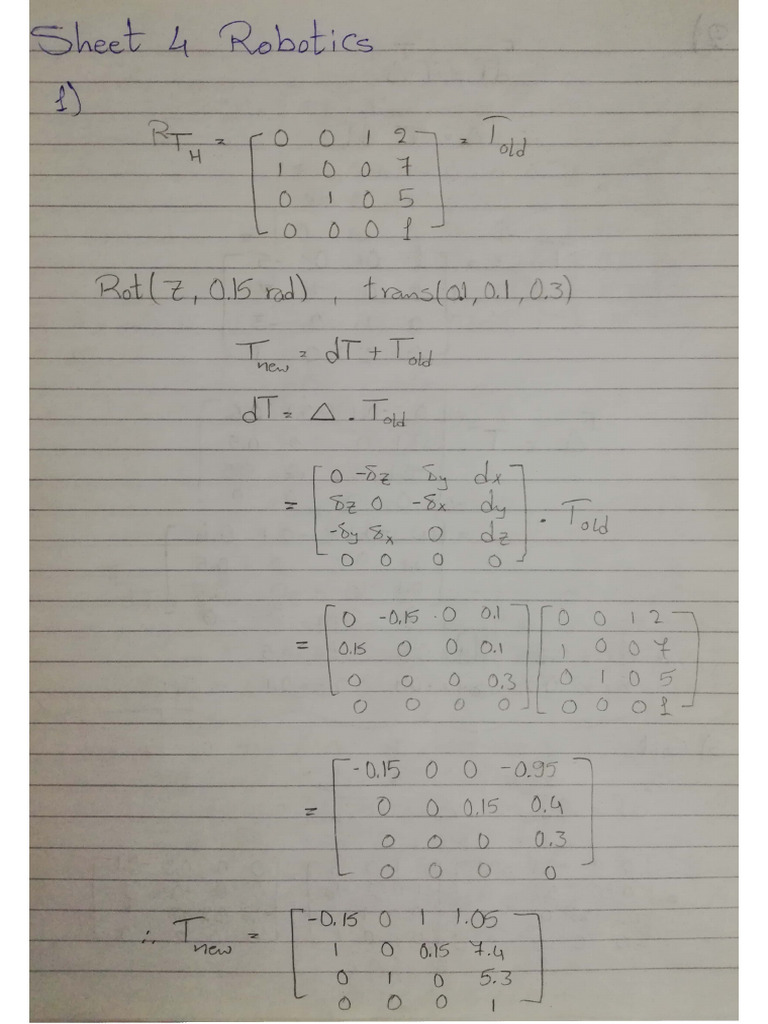 Sheet 4 Robotics
1)
RTH = [0 0 1 2 = Told
1 0 0 7
0 1 0 5
0 0 0 1]
Rot(Z, 0.15 rad), trans(0.1, 0.1, 0.3)
Tnew = dT + Told
dT = Δ . Told
= [0 -δz δy dx
δz 0 -δx dy
-δy δx 0 dz . Told
0 0 0 0]
= [0 -0.15 0 0.1] [0 0 1 2
0.15 0 0 0.1 1 0 0 7
0 0 0 0.3 0 1 0 5
0 0 0 0] [0 0 0 1]
= [-0.15 0 0 -0.95
0 0 0.15 0.4
0 0 0 0.3
0 0 0 0]
∴ Tnew = [-0.15 0 1 1.05
1 0 0.15 7.4
0 1 0 5.3
0 0 0 1]